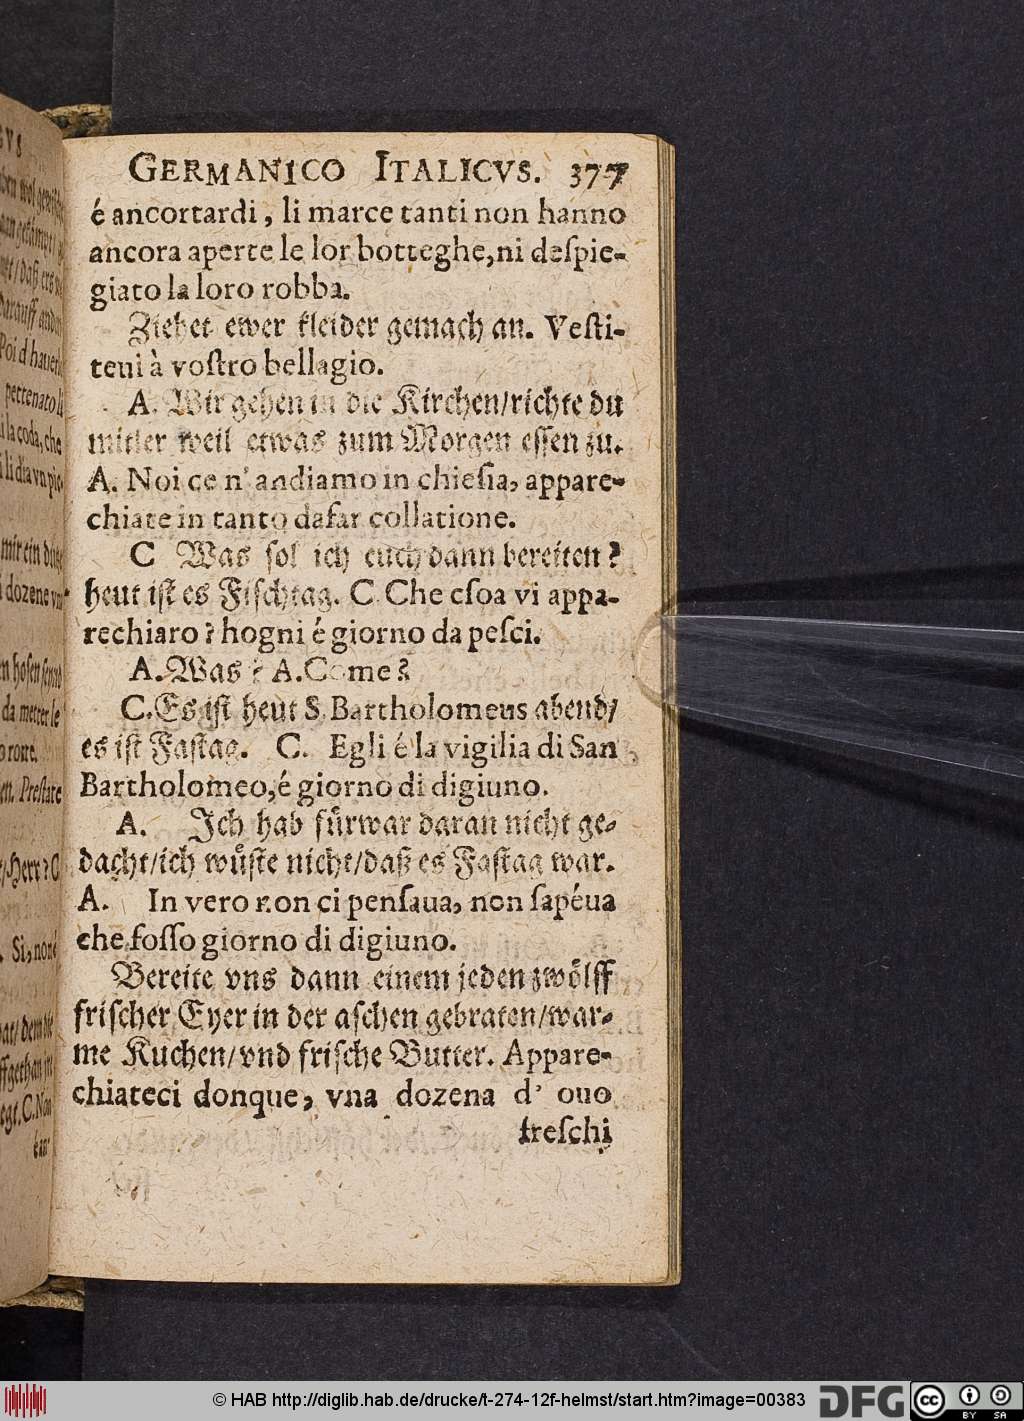 GERMANICO ITALICVS. 377
é ancortardi, li marce tanti non hanno
ancora aperte le lor botteghe, ni deſpie-
giato la loro robba.
Ziehet ewer kleider gemach an. Veſti-
teui à voſtro bellagio.
A. Wir gehen in die Kirchen/richte du
mitler weil etwas zum Morgen eſſen zu.
A. Noi ce n' andiamo in chieſia, appare-
chiate in tanto dafar collatione.
C Was ſol ich euch dann bereiten?
heut iſt es Fiſchtag. C Che cſoa vi appa-
rechiaro? hogni é giorno da peſci.
A. Was? A. Come?
C. Es iſt heut S. Bartholomeus abend/
es iſt Faſtag. C. Egli é la vigilia di San
Bartholomeo, é giorno di digiuno.
A. Ich hab fürwar daran nicht ge-
dacht/ich wüſte nicht/daß es Faſtag war.
A. In vero non ci penſaua, non ſapéua
che foſſo giorno di digiuno.
Bereite vns dann einem jeden zwölff
friſcher Eyer in der aſchen gebraten/war-
me Kuchen/vnd friſche Butter. Appare-
chiateci donque, vna dozena d' ouo
freſchi
© HAB http://diglib.hab.de/drucke/t-274-12f-helmst/start.htm?image=00383
DFG
cc BY SA